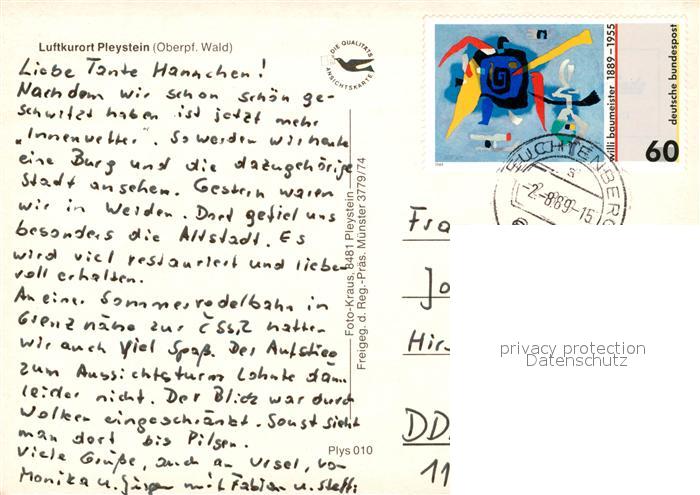 Luftkurort Pleystein (Oberpf. Wald)
DIE QUALITÄTS
ANSICHTSKARTE
Liebe Tante Hannchen!
Nachdem wir schon schön ge-
schwitzt haben ist jetzt mehr
„Innenwetter". So werden wir heute
eine Burg und die dazugehörige
Stadt ansehen. Gestern waren
wir in Weiden. Dort gefiel uns
besonders die Altstadt. Es
wird viel restauriert und liebe-
voll erhalten.
An einer Sommerrodelbahn in
Grenznähe zur ČSSR hatten
wir auch viel Spaß. Der Aufstieg
zum Aussichtsturm lohnte
leider nicht. Der Blick war durch
Wolken eingeschränkt. Sonst sieht
man dort bis Pilsen.
Viele Grüße, auch an Ursel, von
Monika u. Jürgen mit Fabian u. Steffi
Foto-Kraus, 8481 Pleystein
Freigeg. d. Reg.-Präs. Münster 3779/74
Plys 010
willi baumeister 1889-1955
deutsche bundespost
60
LEUCHTENBERG
-2.-8.89-15
Fra
Jo
Hir
DD
11
privacy protection
Datenschutz